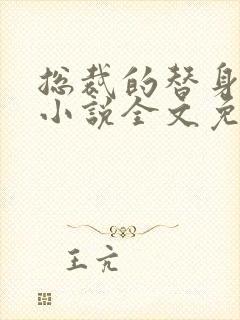 总裁的替身
小说全文免
王亢